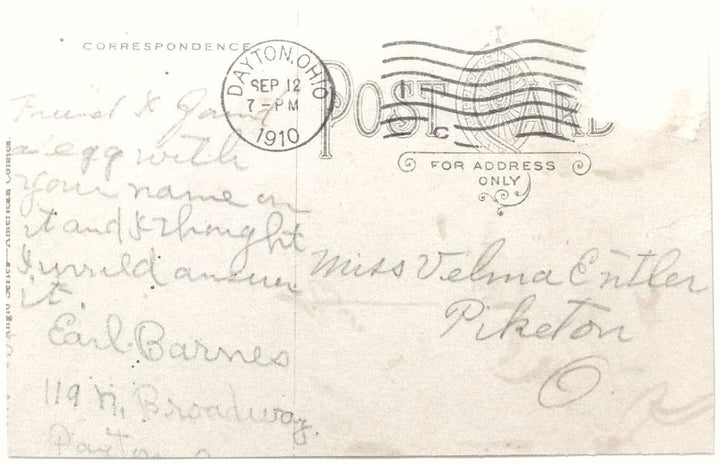 CORRESPONDENCE
DAYTON, OHIO
SEP 12
7-PM
1910
POST CARD
FOR ADDRESS
ONLY
Friend I found
a egg with
your name on
it and I thought
I would answer
it.
Earl Barnes
119 N. Broadway.
Dayton O
Miss Velma Entler
Piketon
O
Anglo Series - American